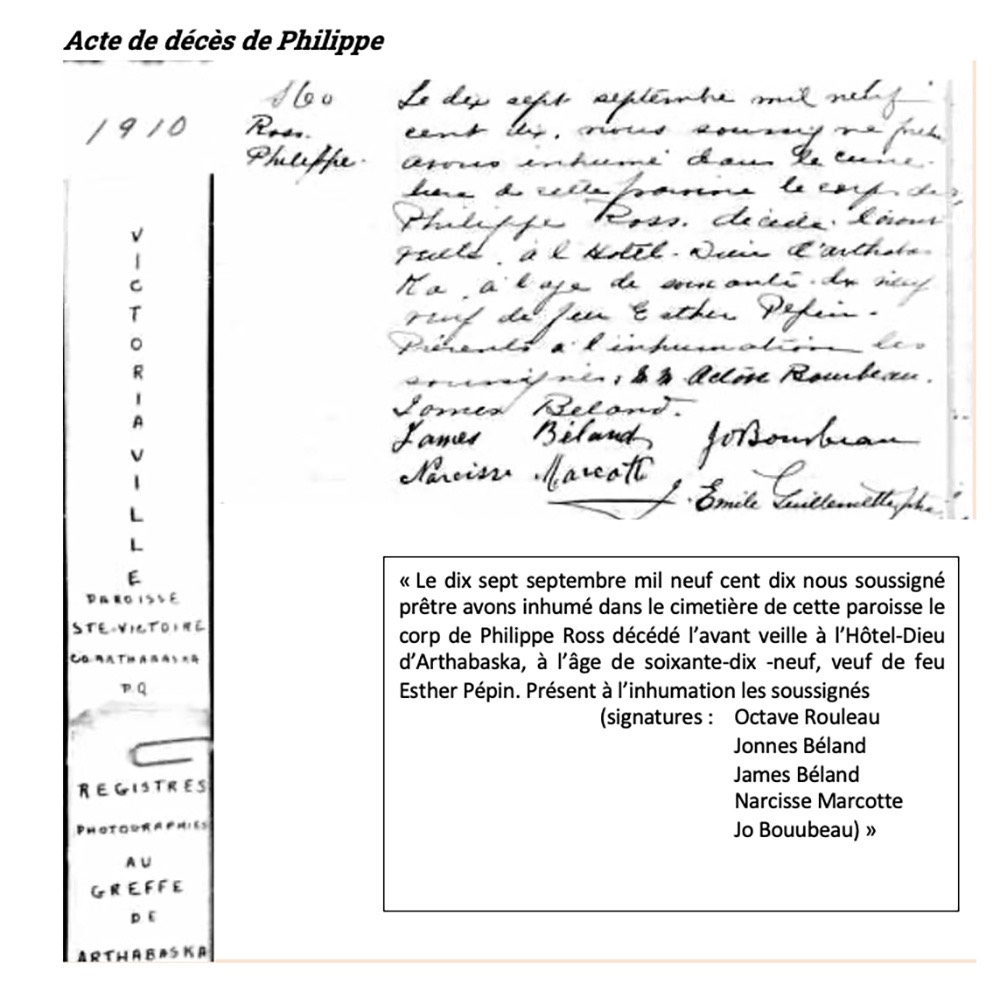 Acte de décès de Philippe
1910
S60
Ross.
Philippe.
Le dix sept septembre mil neuf
cent dix, nous soussigné prêtre
avons inhumé dans le cime-
tière de cette paroisse le corp de
Philippe Ross. décédé l'avant
veille, à l'Hotel-Dieu d'arthabas
Ka, à l'age de soixante-dix neuf
veuf de feu Esther Pepin.
Présents à l'inhumation les
soussignés, Bourbeau.
James Beland.
James Béland Jo Bourbeau
Narcisse Marcotte
J. Emile Guillemette, ptre.
VICTORIAVILLE
PAROISSE
STE-VICTOIRE
CO. ARTHABASKA
P.Q
REGISTRES
PHOTOGRAPHIES
AU
GREFFE
DE
ARTHABASKA
« Le dix sept septembre mil neuf cent dix nous soussigné
prêtre avons inhumé dans le cimetière de cette paroisse le
corp de Philippe Ross décédé l'avant veille à l'Hôtel-Dieu
d'Arthabaska, à l'âge de soixante-dix -neuf, veuf de feu
Esther Pépin. Présent à l'inhumation les soussignés
(signatures : Octave Rouleau
Jonnes Béland
James Béland
Narcisse Marcotte
Jo Bouubeau) »